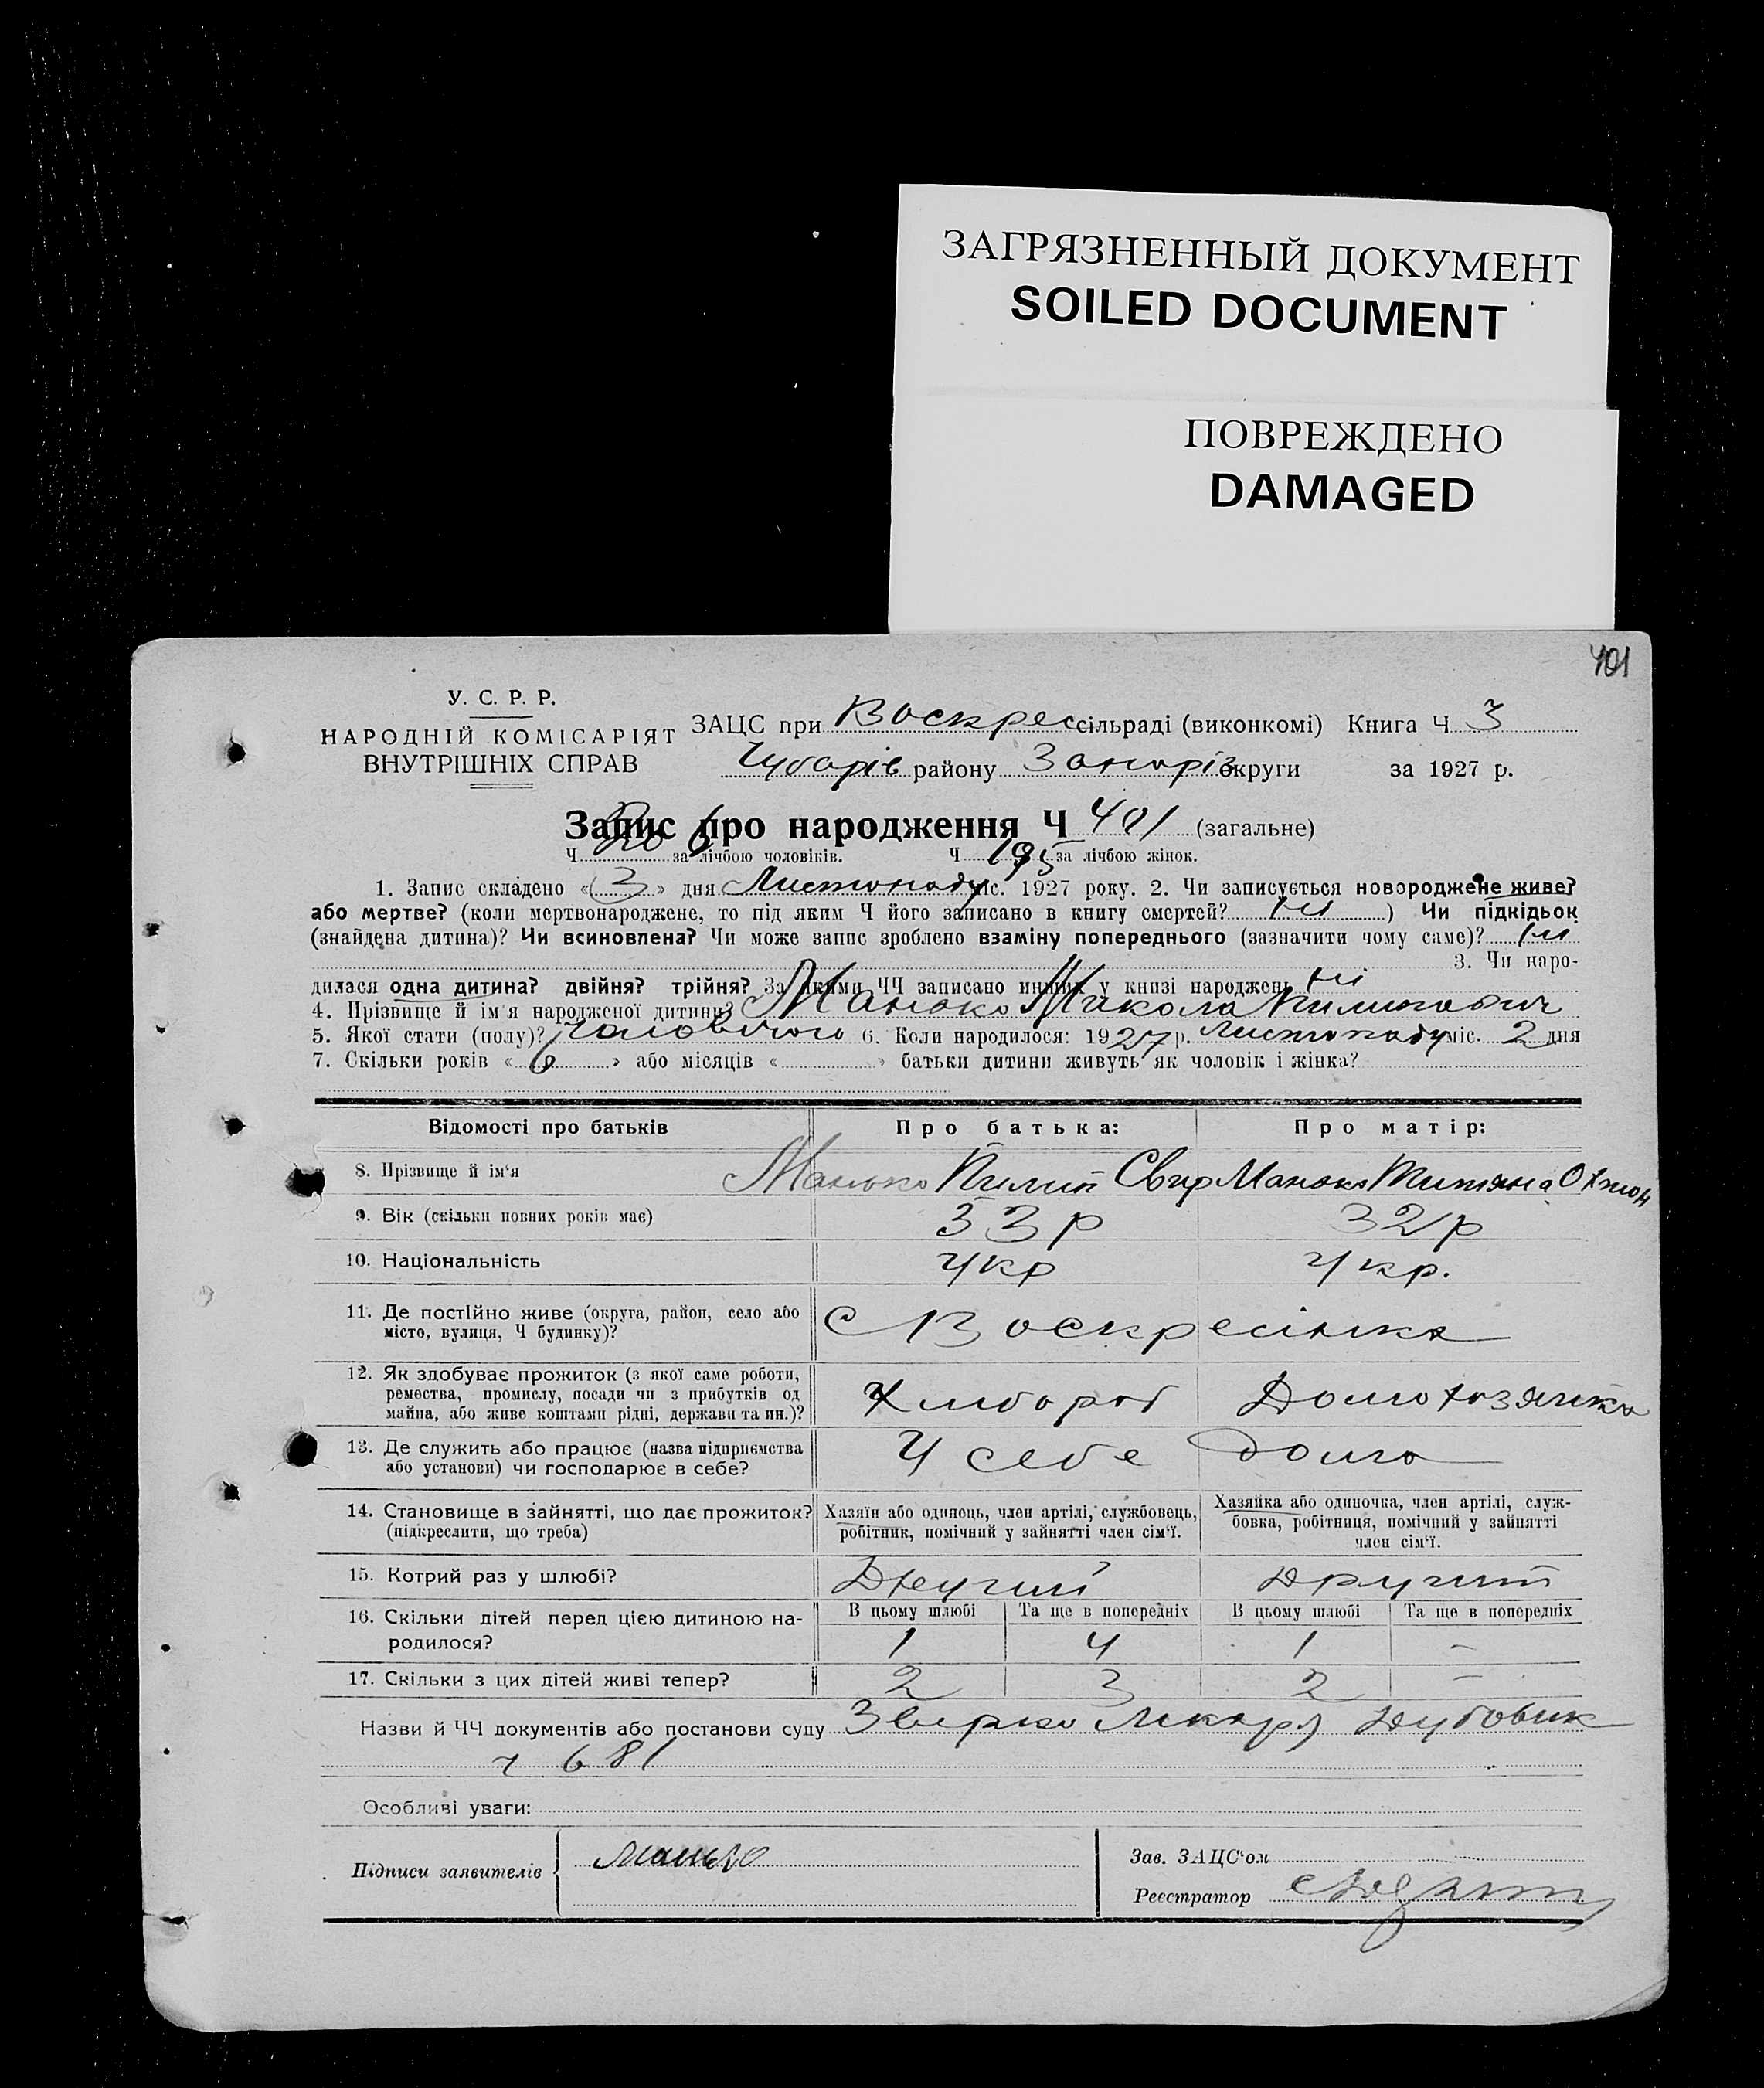 ЗАГРЯЗНЕННЫЙ ДОКУМЕНТ
SOILED DOCUMENT
ПОВРЕЖДЕНО
DAMAGED
401
У. С. Р. Р.
НАРОДНІЙ КОМІСАРІЯТ
ВНУТРІШНІХ СПРАВ
ЗАЦС при Воскрес сільраді (виконкомі) Книга Ч 3
Чубарів району Запоріз округи за 1927 р.
Запис про народження Ч 401 (загальне)
Ч 206 за лічбою чоловіків. Ч 195 за лічбою жінок.
1. Запис складено «3» дня Листопаду міс. 1927 року. 2. Чи записується новороджене живе?
або мертве? (коли мертвонароджене, то під яким Ч його записано в книгу смертей? ні ) Чи підкідьок
(знайдена дитина)? Чи всиновлена? Чи може запис зроблено взаміну попереднього (зазначити чому саме)? ні
3. Чи наро-
дилася одна дитина? двійня? трійня? За якими ЧЧ записано инших у книзі народжень ні
4. Прізвище й ім'я народженої дитини? Манько Микола Пилипович
5. Якої стати (полу)? чоловічого 6. Коли народилося: 1927 р. Листопаду міс. 2 дня
7. Скільки років « 6 » або місяців « » батьки дитини живуть як чоловік і жінка?
Відомості про батьків Про батька: Про матір:
8. Прізвище й ім‘я Манько Пилип Свир Манько Титяна
9. Вік (скільки повних років має) 33 р 32 р
10. Національність Укр Укр.
11. Де постійно живе (округа, район, село або
місто, вулиця, Ч будинку)? С Воскресінка
12. Як здобуває прожиток (з якої саме роботи,
ремества, промислу, посади чи з прибутків од
майна, або живе коштами рідні, держави та ин.)? Хлибороб Домохозяйка
13. Де служить або працює (назва підприємства
або установи) чи господарює в себе? У себе дома
14. Становище в зайнятті, що дає прожиток?
(підкреслити, що треба)
Хазяїн або одинець, член артілі, службовець,
робітник, помічний у зайнятті член сім‘ї.
Хазяйка або одиночка, член артілі, служ-
бовка, робітниця, помічний у зайнятті
член сім‘ї.
15. Котрий раз у шлюбі? Другий Другий
16. Скільки дітей перед цією дитиною на-
родилося?
В цьому шлюбі Та ще в попередніх В цьому шлюбі Та ще в попередніх
1 4 1 -
17. Скільки з цих дітей живі тепер? 2 3 2 -
Назви й ЧЧ документів або постанови суду
ч 681
Особливі уваги:
Підписи заявителів Манько
Зав. ЗАЦС‘ом
Реєстратор